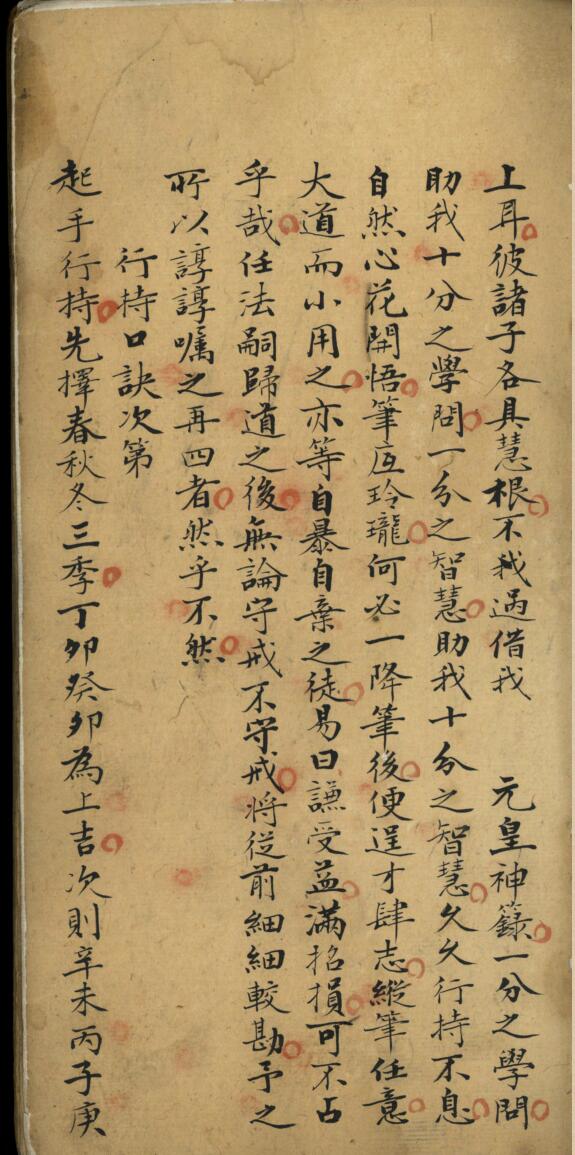 上耳彼諸子各具慧根不我過借我　元皇神籙一分之學問
助我十分之學問一分之智慧助我十分之智慧久久行持不息
自然心花開悟筆底玲瓏何必一降筆後便逞才肆志縱筆任意
大道而小用之亦等自暴自棄之徒易曰謙受益滿招損可不占
乎哉任法嗣歸道之後無論守戒不守戒将從前細細較勘予之
所以諄諄囑之再四者然乎不然
行持口訣次第
起手行持先擇春秋冬三季丁卯癸卯為上吉次則辛未丙子庚